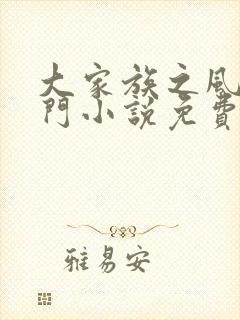 大家族之風
門小説免費
雅易安